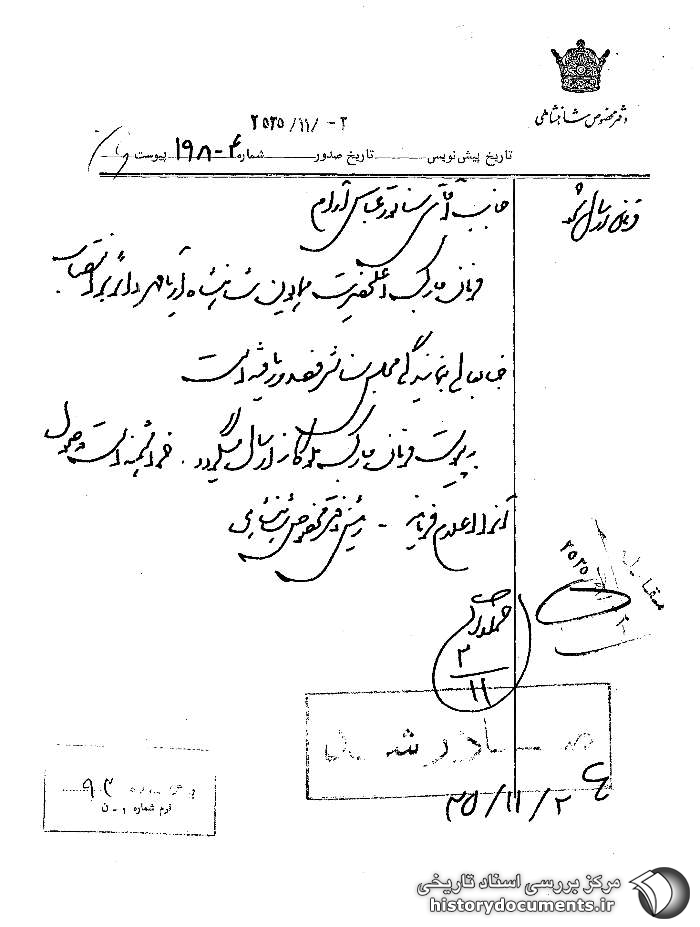 دفتر مخصوص شاهنشاهی
۲۵۳۵/۱۱/-۲
تاریخ پیش نویسی تاریخ صدور شماره ۴-۱۹۸ پیوست
جناب آقای سناتور عباس آرام
فرمان ارسال شود
فرمان مبارک اعلیحضرت همایون شاهنشاه آریامهر دائر بر انتصاب
جنابعالی بنمایندگی مجلس سنا شرفصدور یافته است
به پیوست فرمان مبارک ملوکانه ارسال میگردد . خواهشمند است وصول
آنرا اعلام فرمایند - رئیس دفتر مخصوص شاهنشاهی
۲
۱۱
مقابله شد
۲۵۳۵
صادر شد
۳۵/۱۱/۲
۹۳
فرم شماره ۱-ن
مرکز بررسی اسناد تاریخی
historydocuments.ir